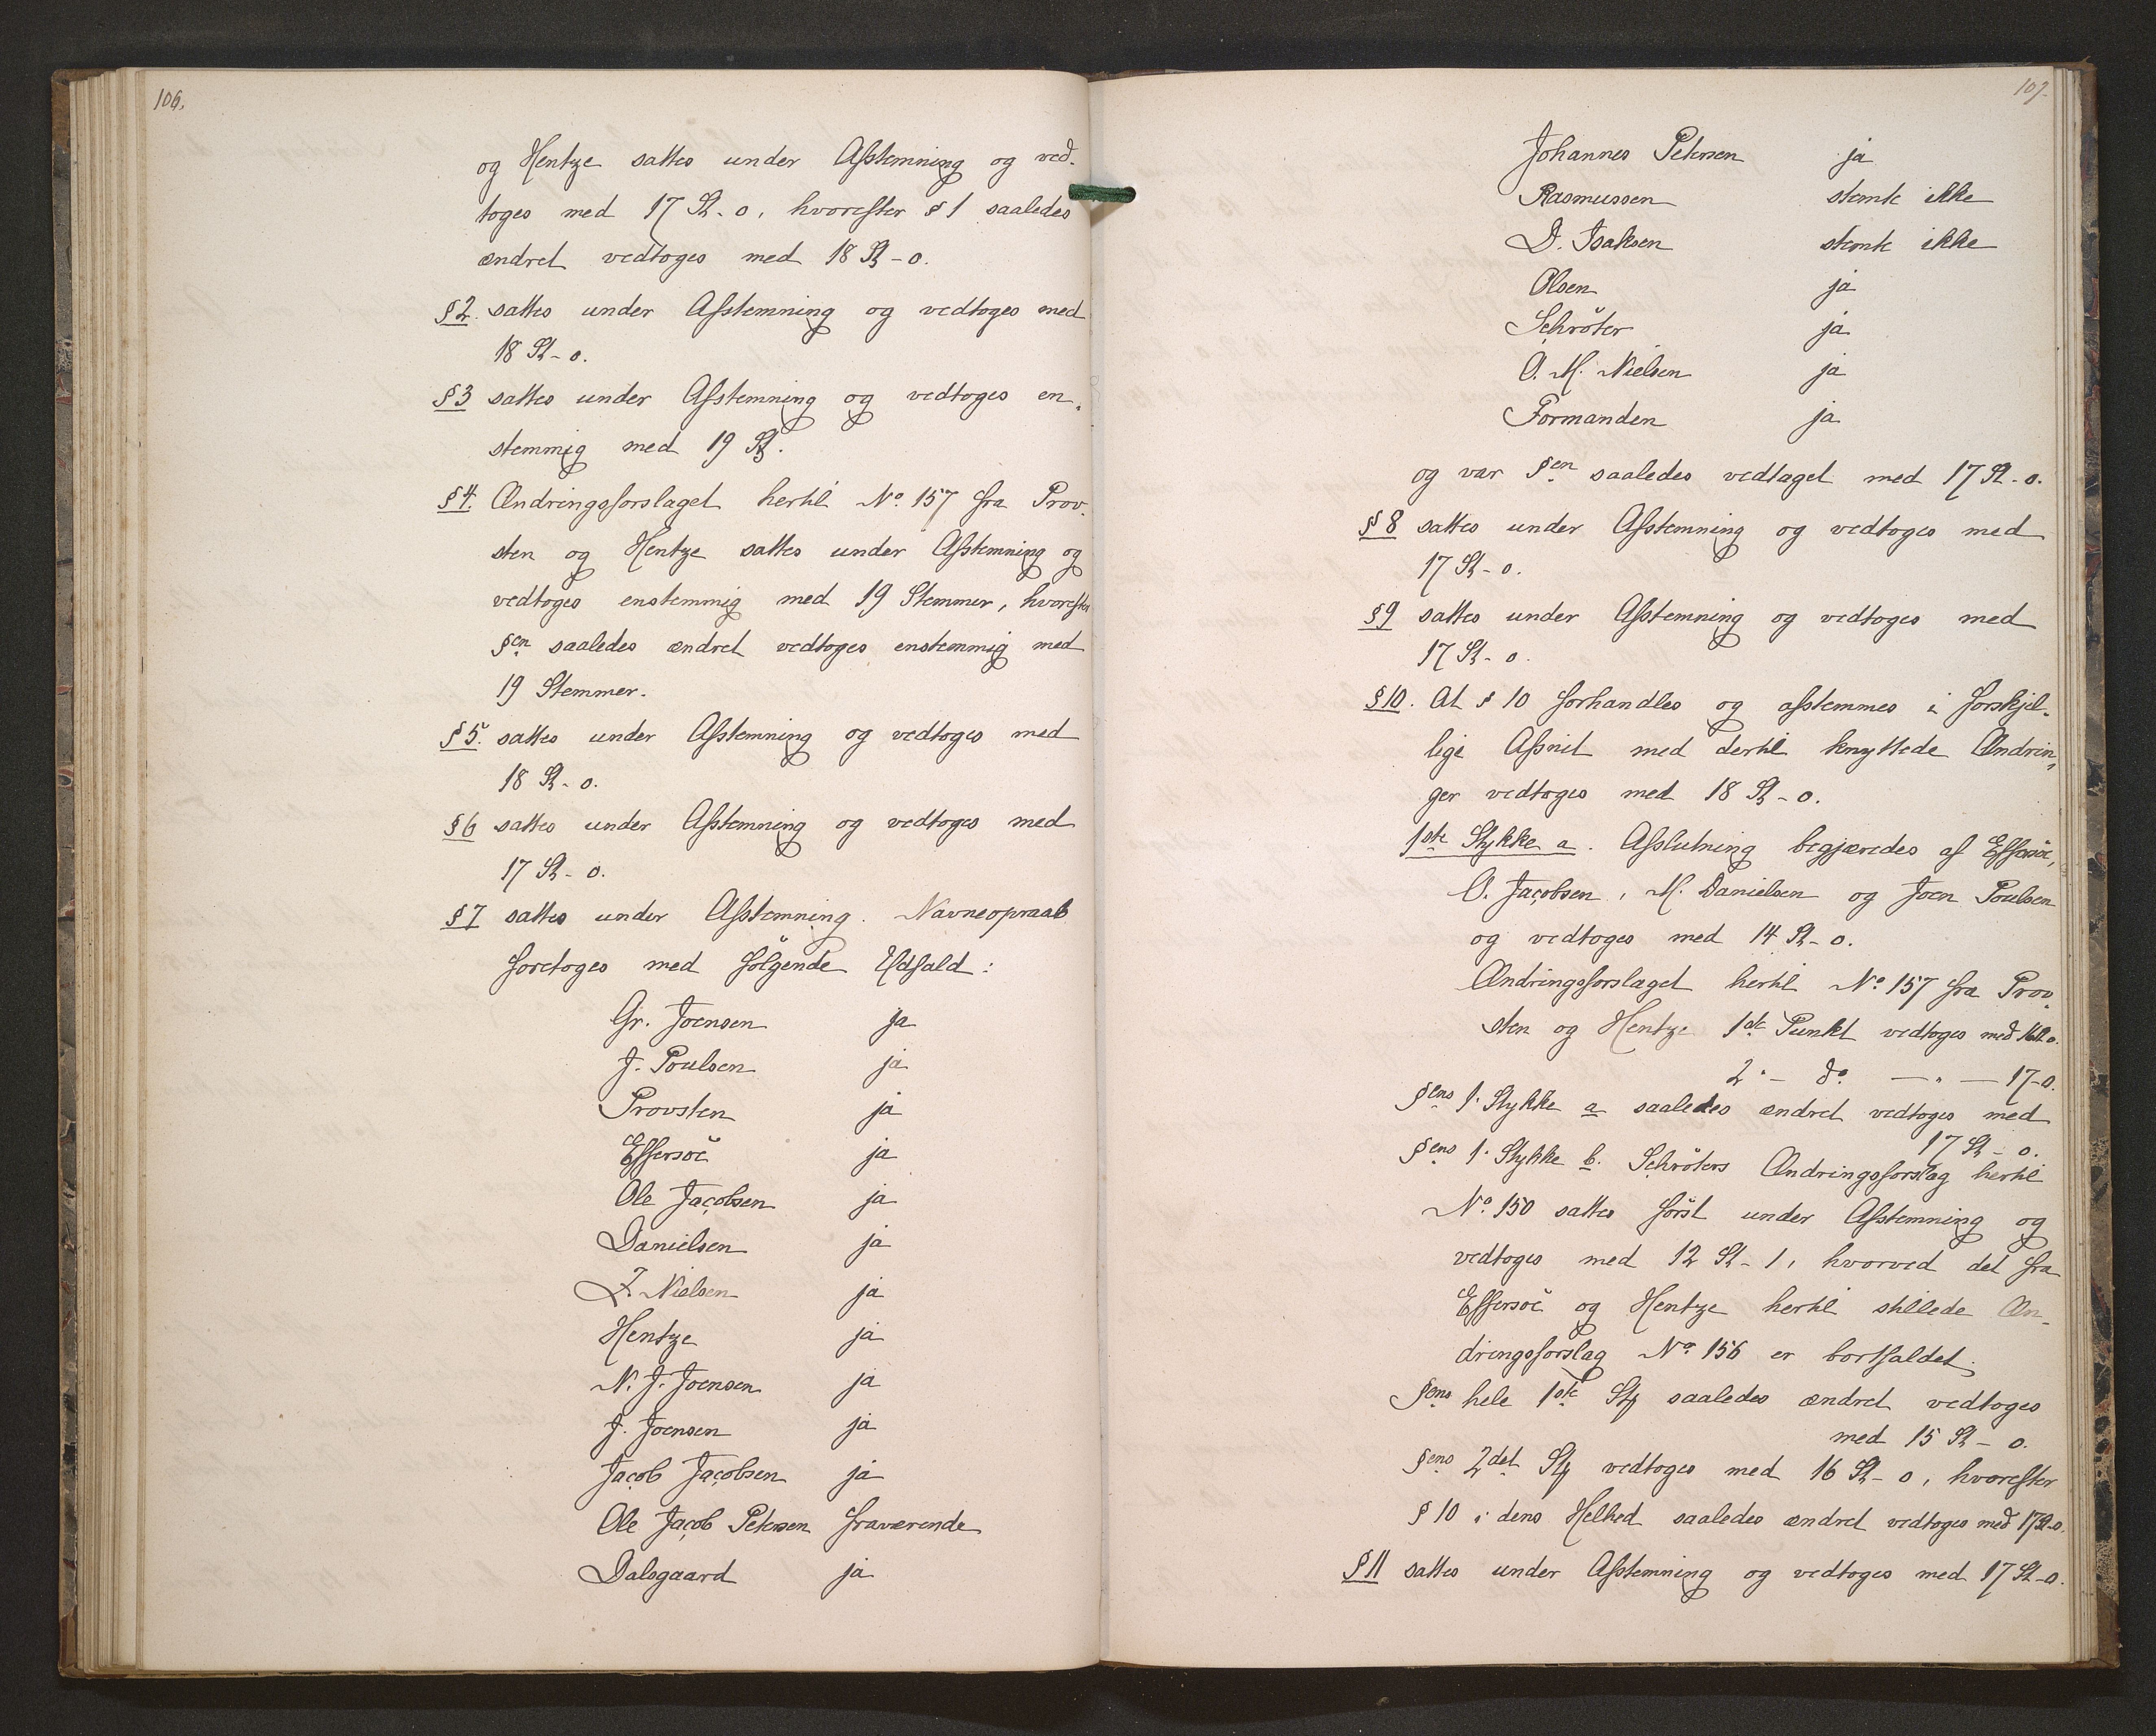 106.
og Hentze sattes under Afstemning og ved-
toges med 17 St - 0, hvorefter § 1 saaledes
ændret vedtoges med 18 St - 0.
§ 2. sattes under Afstemning og vedtoges med
18 St - 0.
§ 3 sattes under Afstemning og vedtoges en-
stemmig med 19 St.
§ 4. Ændringsforslaget hertil No. 157 fra Prov-
sten og Hentze sattes under Afstemning og
vedtoges enstemmig med 19 Stemmer, hvorefter
§en saaledes ændret vedtoges enstemmig med
19 Stemmer.
§ 5. sattes under Afstemning og vedtoges med
18 St - 0.
§ 6 sattes under Afstemning og vedtoges med
17 St - 0.
§ 7 sattes under Afstemning. Navneopraab
foretoges med følgende Udfald:
Gr. Joensen ja
J. Poulsen ja
Provsten ja
Effersöe ja
Ole Jacobsen ja
Danielsen ja
J. Nielsen ja
Hentze ja
N. J. Joensen ja
J. Joensen ja
Jacob Jacobsen ja
Ole Jacob Petersen fraværende
Dalsgaard ja
107.
Johannes Petersen ja
Rasmussen stemte ikke
D. Isaksen stemte ikke
Olsen ja
Schröter ja
O. M. Nielsen ja
Formanden ja
og var §en saaledes vedtaget med 17 St - 0.
§ 8 sattes under Afstemning og vedtoges med
17 St - 0.
§ 9 sattes under Afstemning og vedtoges med
17 St - 0.
§ 10. At § 10 forhandles og afstemmes i forskjel-
lige Afsnit med dertil knyttede Ændrin-
ger vedtoges med 18 St - 0.
1ste Stykke a. Afslutning begjæredes af Effersöe,
O. Jacobsen, M. Danielsen og Joen Poulsen
og vedtoges med 14 St - 0.
Ændringsforslaget hertil No. 157 fra Prov-
sten og Hentze 1ste Punkt vedtoges med 16 St 0.
2' - do. - " - 17-0.
§ens 1. Stykke a saaledes ændret vedtoges med
17 St - 0.
§ens 1. Stykke b. Schröters Ændringsforslag hertil
No. 150 sattes först under Afstemning og
vedtoges med 12 St - 1, hvorved det fra
Effersöe og Hentze hertil stillede Æn-
dringsforslag No. 156 er bortfaldet.
§ens hele 1ste St saaledes ændret vedtoges
med 15 St - 0.
§ens 2det St vedtoges med 16 St - 0, hvorefter
§ 10 i dens Helhed saaledes ændret vedtoges med 17 St - 0.
§ 11 sattes under Afstemning og vedtoges med 17 St - 0.